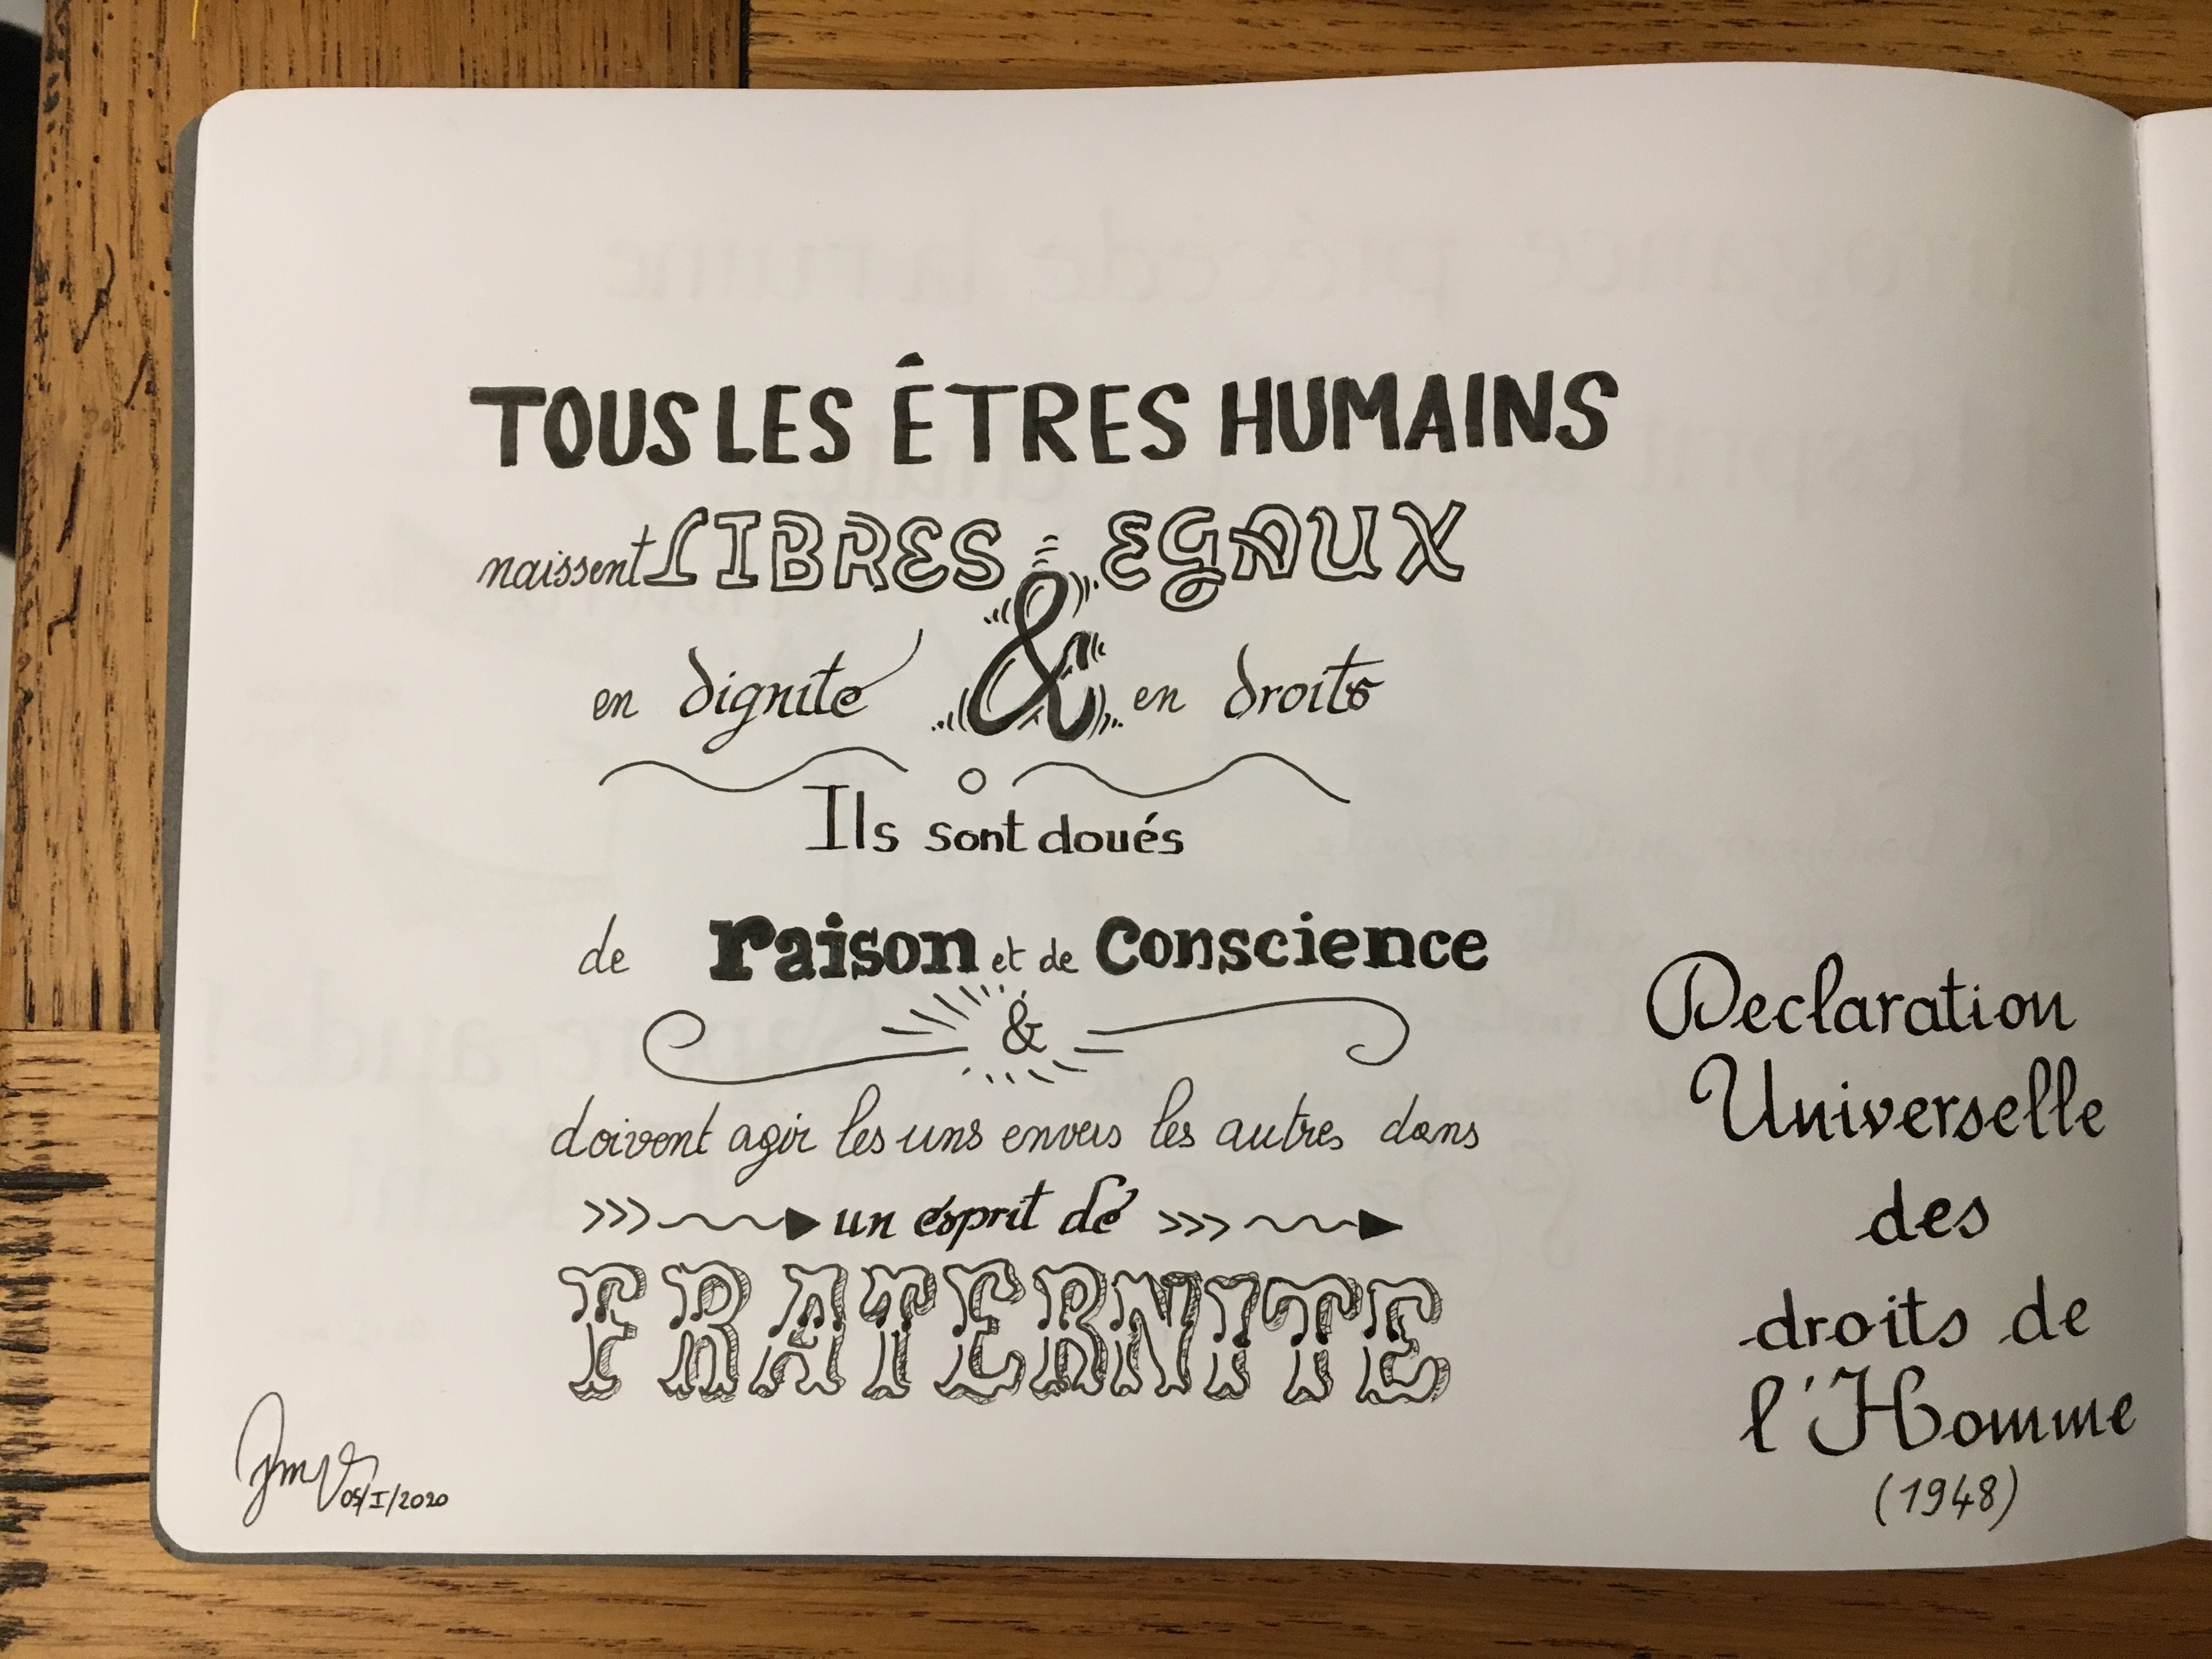 TOUS LES ÊTRES HUMAINS
naissent LIBRES & EGAUX
en dignité & en droits
Ils sont doués
de raison et de Conscience
&
doivent agir les uns envers les autres dans
un esprit de
FRATERNITE
Declaration
Universelle
des
droits de
l'Homme
(1948)
05/I/2020